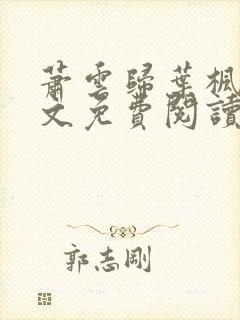 蕭雲歸葉楓
文免費閱讀
郭志剛